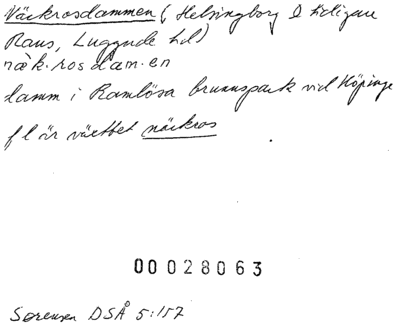 Näckrosdammen (Helsingborg l tidigare
Raus, Luggude hd)
næk.rosdam.en
damm i Ramlösa brunnspark vid Köpinge
fl är växtbet näckros
00028063
Sørensen DSÅ 5:157